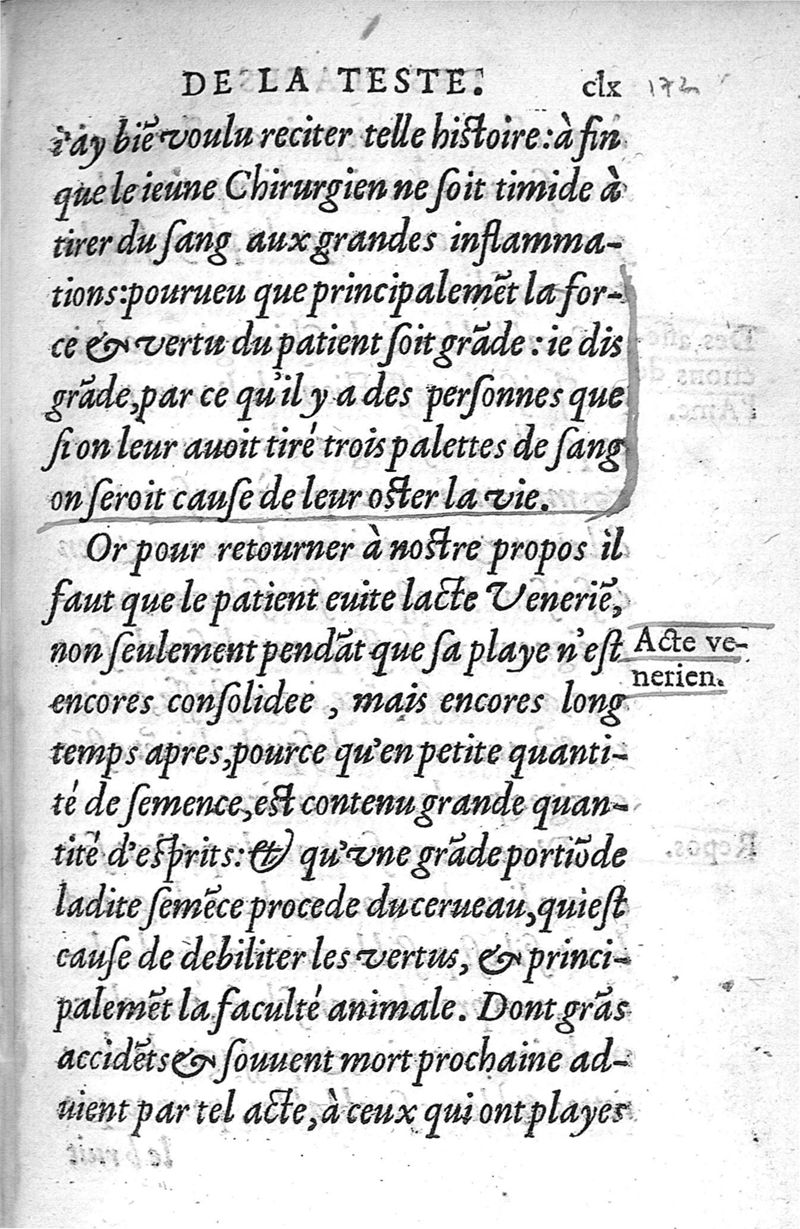 DE LA TESTE. clx 172
i'ay biẽ voulu reciter telle histoire: à fin
que le ieune Chirurgien ne soit timide à
tirer du sang aux grandes inflamma-
tions: pourueu que principalemẽt la for-
ce & vertu du patient soit grãde: ie dis
grãde, par ce qu'il y a des personnes que
si on leur auoit tiré trois palettes de sang
on seroit cause de leur oster la vie.
Or pour retourner à nostre propos il
faut que le patient euite lacte Veneriẽ,
non seulement pendãt que sa playe n'est
Acte ve-
nerien.
encores consolidee, mais encores long
temps apres, pource qu'en petite quanti-
té de semence, est contenu grande quan-
tité d'esprits: & qu'vne grãde portiõ de
ladite semẽce procede du cerueau, qui est
cause de debiliter les vertus, & princi-
palemẽt la faculté animale. Dont grãs
accidẽts & souuent mort prochaine ad-
uient par tel acte, à ceux qui ont playes